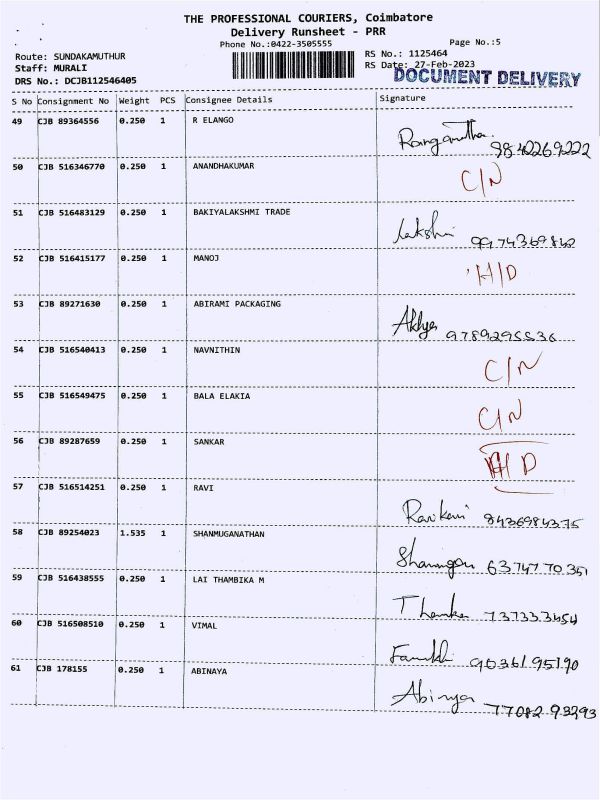 THE PROFESSIONAL COURIERS, Coimbatore
Delivery Runsheet - PRR
Phone No.:0422-3505555
Page No.:5
Route: SUNDAKAMUTHUR
RS No.: 1125464
Staff: MURALI
RS Date: 27-Feb-2023
DRS No.: DCJB112546405
DOCUMENT DELIVERY
S No Consignment No Weight PCS Consignee Details Signature
49 CJB 89364556 0.250 1 R ELANGO
9842269222
50 CJB 516346770 0.250 1 ANANDHAKUMAR
C/N
51 CJB 516483129 0.250 1 BAKIYALAKSHMI TRADE
Lakshmi
52 CJB 516415177 0.250 1 MANOJ
H/D
53 CJB 89271630 0.250 1 ABIRAMI PACKAGING
9789295536
54 CJB 516540413 0.250 1 NAVNITHIN
C/N
55 CJB 516549475 0.250 1 BALA ELAKIA
C/N
56 CJB 89287659 0.250 1 SANKAR
H/D
57 CJB 516514251 0.250 1 RAVI
8436984375
58 CJB 89254023 1.535 1 SHANMUGANATHAN
63747 70351
59 CJB 516438555 0.250 1 LAI THAMBIKA M
60 CJB 516508510 0.250 1 VIMAL
9036195190
61 CJB 178155 0.250 1 ABINAYA
Abinya 77082 93293